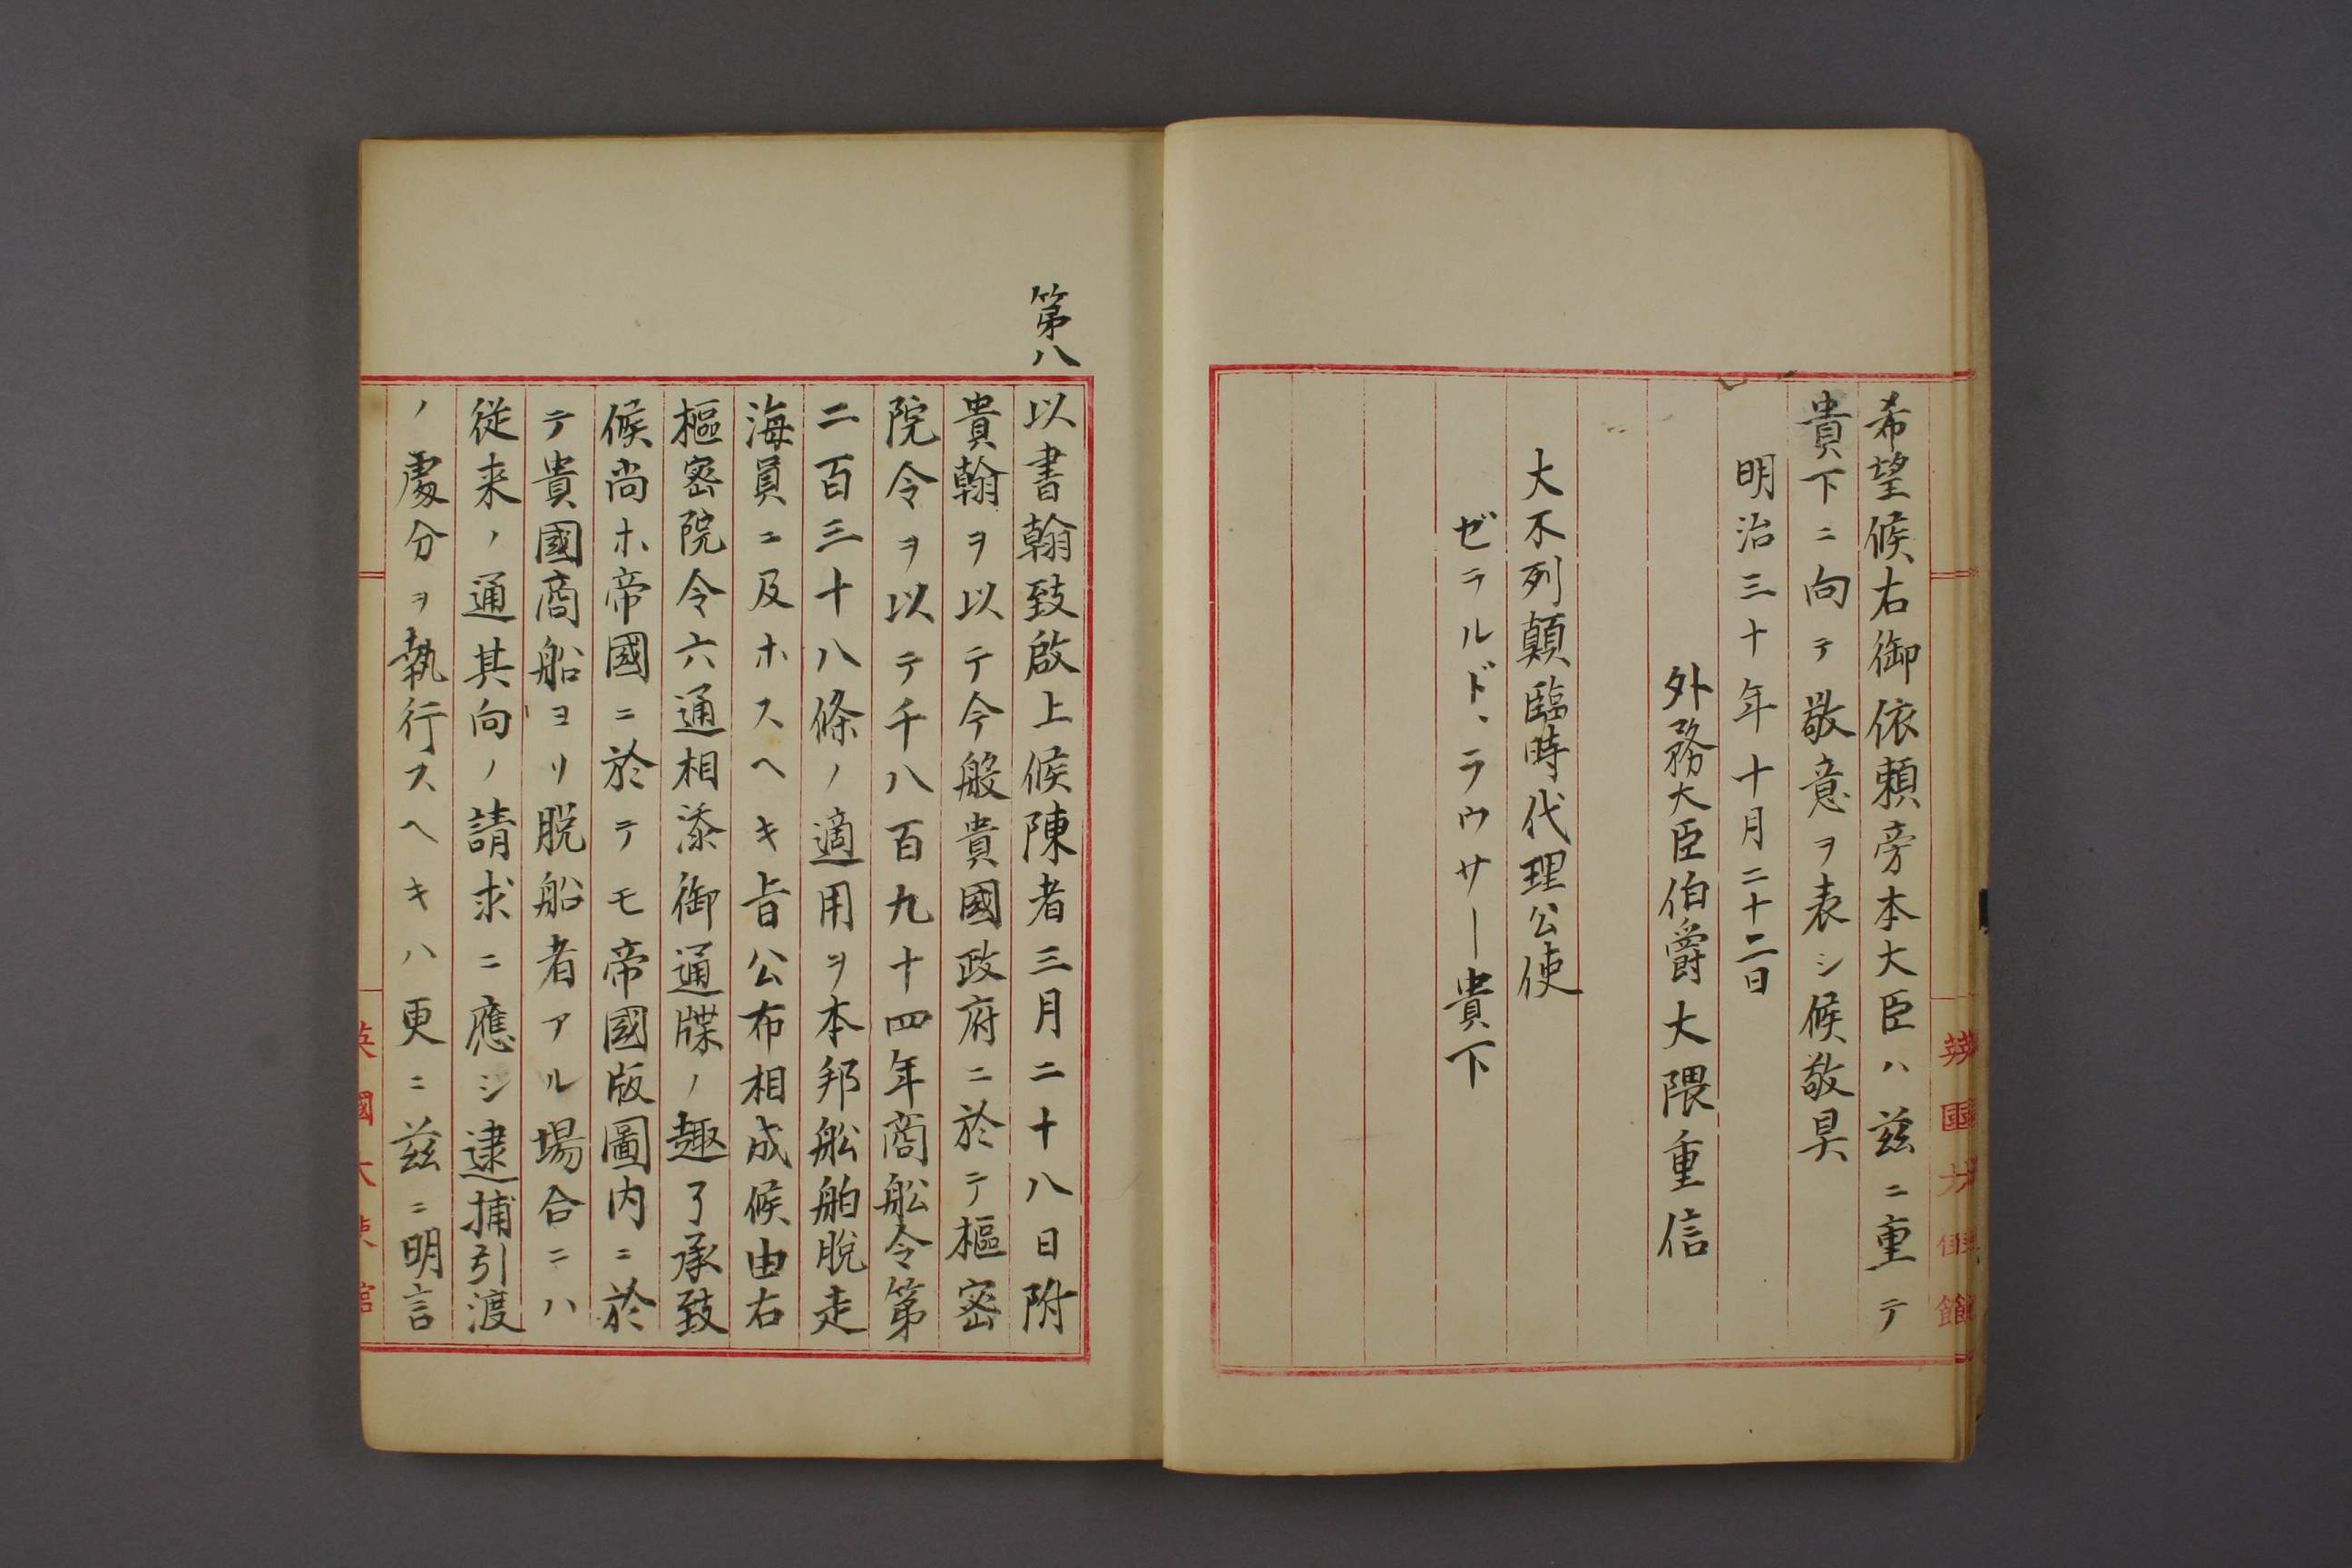 希望候右御依頼旁本大臣ハ茲ニ重テ
貴下ニ向テ敬意ヲ表シ候敬具
明治三十年十月二十二日
外務大臣伯爵大隈重信
大不列顛臨時代理公使
ゼラルド、ラウサー貴下
第八
以書翰致啟上候陳者三月二十八日附
貴翰ヲ以テ今般貴國政府ニ於テ樞密
院令ヲ以テ千八百九十四年商舩令第
二百三十八條ノ適用ヲ本邦舩舶脫走
海員ニ及ホスヘキ旨公布相成候由右
樞密院令六通相添御通牒ノ趣了承致
候尚ホ帝國ニ於テモ帝國版圖内ニ於
テ貴國商船ヨリ脱船者アル場合ニハ
従来ノ通其向ノ請求ニ應シ逮捕引渡
ノ處分ヲ執行スヘキハ更ニ茲ニ明言